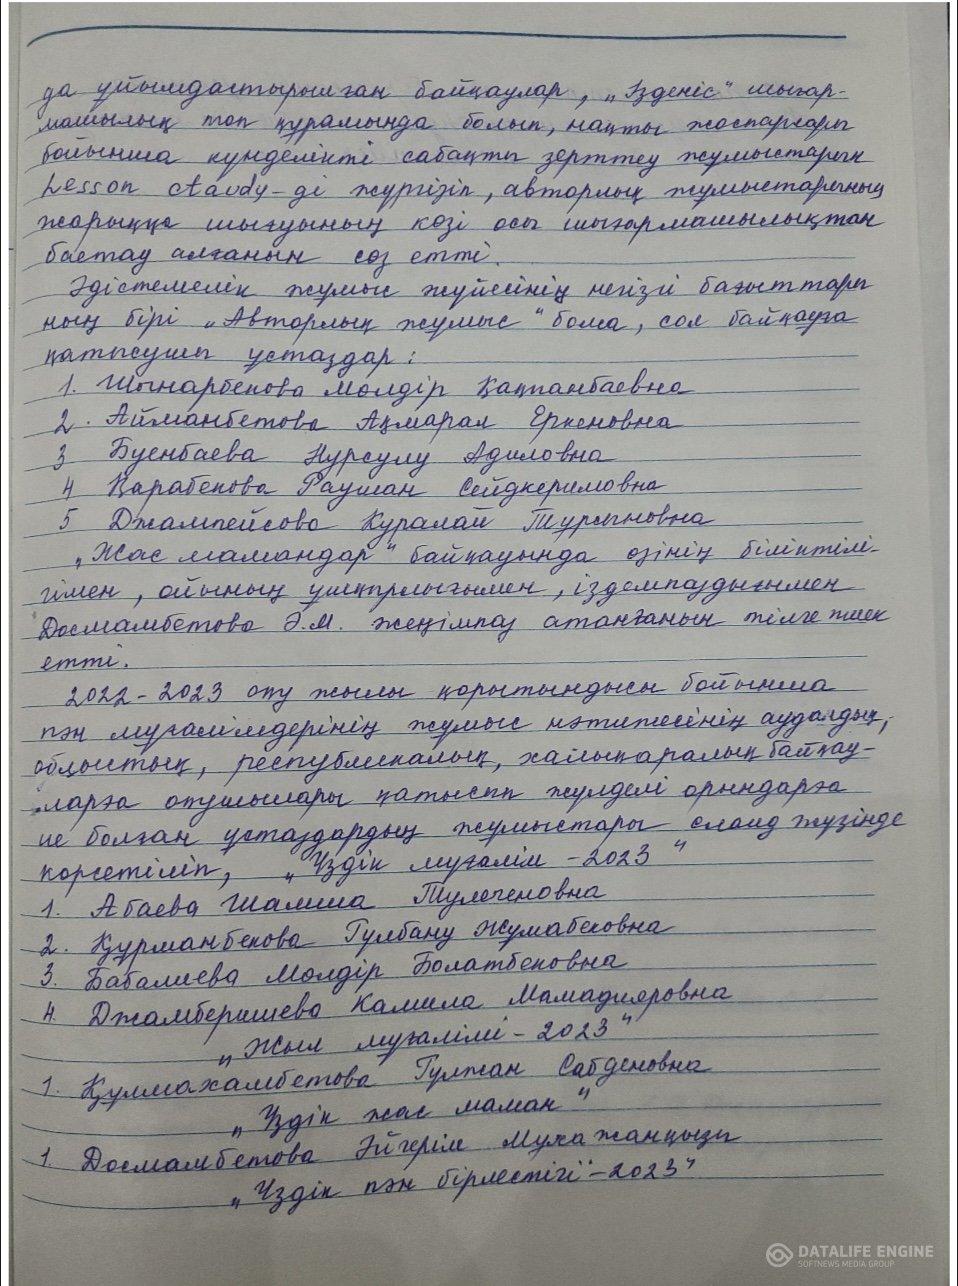 да ұйымдастырылған байқаулар, „Ізденіс“ шығар-
машылық топ құрамында болып, нақты жоспарлары
бойынша күнделікті сабақты зерттеу жұмыстарын
Lesson ctaudy-ді жүргізіп, авторлық жұмыстарының
жарыққа шығуының көзі осы шығармашылықтан
бастау алғанын сөз етті.
Әдістемелік жұмыс жүйесінің негізгі бағыттары
ның бірі „Авторлық жұмыс“ болса, сол байқауға
қатысушы ұстаздар:
1. Шынарбекова Мөлдір Қақпанбаевна
2. Айманбетова Ақмарал Еркеновна
3 Буенбаева Нурсулу Адиловна
4 Қарабекова Раушан Сейдкеримовна
5 Джампейсова Куралай Турсыновна
„Жас мамандар“ байқауында өзінің біліктілі-
гімен, ойының ұшқырлығымен, ізденпаздығымен
Досмамбетова Ә.М. жеңімпаз атанғанын тілге тиек
етті.
2022-2023 оқу жылы қорытындысы бойынша
пән мұғалімдерінің жұмыс нәтижесінің аудандық,
облыстық, республикалық, халықаралық байқау-
ларға оқушылары қатысып жүлделі орындарға
ие болған ұстаздардың жұмыстары слайд жүзінде
көрсетіліп, „Үздік мұғалім -2023“
1. Абаева Шалиша Тулегеновна
2. Құрманбекова Гулбану Жумабековна
3. Бабалиева Мөлдір Болатбековна
4. Джамберишева Камила Мамадияровна
„Жыл мұғалімі - 2023“
1. Құлмахамбетова Гулжан Сабденовна
„Үздік жас маман“
1. Досмамбетова Әйгерім Мұхажанқызы
„Үздік пән бірлестігі“-2023“
DATALIFE ENGINE
SOFTNEWS MEDIA GROUP